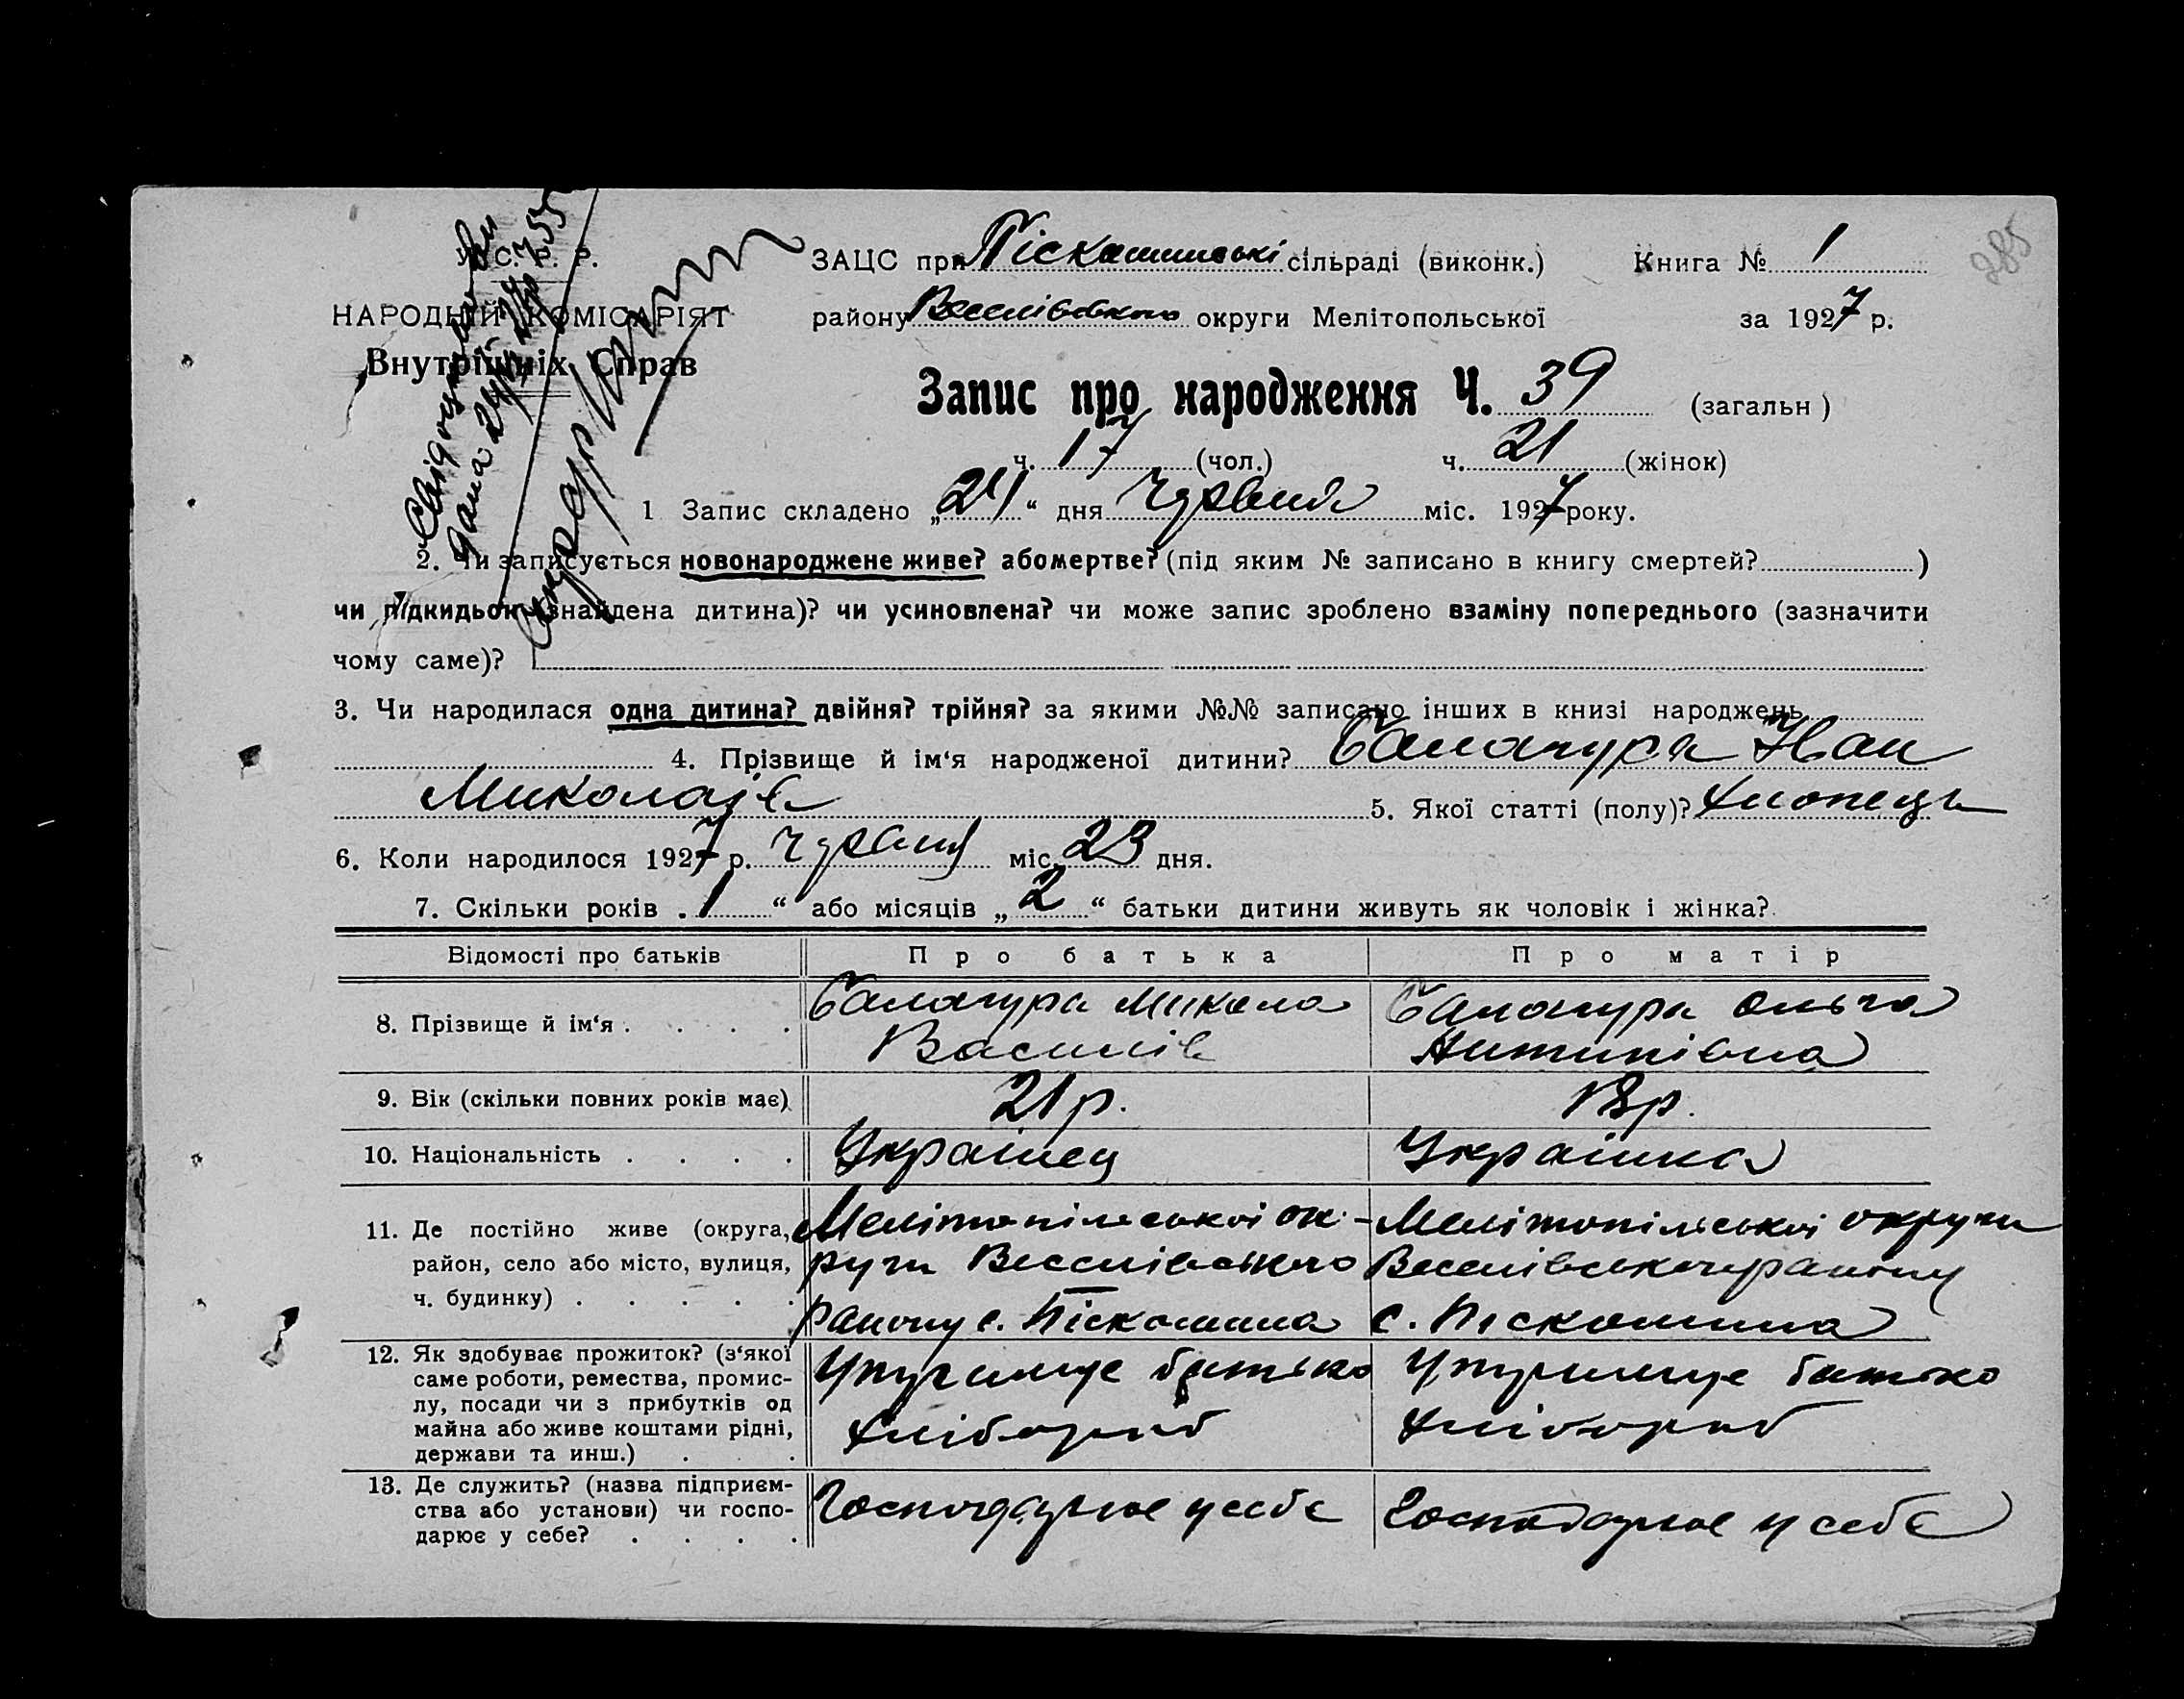 У. С. Р. Р.
НАРОДНІЙ КОМІСАРІЯТ
Внутрішніх Справ
ЗАЦС при Піскошинські сільраді (виконк.) Книга № 1
285
району Веселівського округи Мелітопольської за 1927 р.
Запис про народження Ч. 39 (загальн )
ч. 17 (чол.) ч. 21 (жінок)
1 Запис складено „24“ дня Червня міс. 1927 року.
2. Чи записується новонароджене живе? або мертве? (під яким № записано в книгу смертей? )
чи підкидьок (знайдена дитина)? чи усиновлена? чи може запис зроблено взаміну попереднього (зазначити
чому саме)?
3. Чи народилася одна дитина? двійня? трійня? за якими №№ записано інших в книзі народжень
4. Прізвище й ім‘я народженої дитини? Балачура Іван
Миколаїв 5. Якої статті (полу)? Хлопець
6. Коли народилося 1927 р. Червня міс. 23 дня.
7. Скільки років „1“ або місяців „2“ батьки дитини живуть як чоловік і жінка?
Відомості про батьків Про батька Про матір
8. Прізвище й ім‘я . . . . Балачура Микола Василів Балачура Ольга Антипівна
9. Вік (скільки повних років має) 21 р. 18 р.
10. Національність . . . . Українец Українка
11. Де постійно живе (округа, Мелітопільської ок- Мелітопільської округи
район, село або місто, вулиця, руги Веселівського Веселівського району
ч. будинку) . . . . . району с. Піскошина с. Піскошина
12. Як здобуває прожиток? (з‘якої
саме роботи, ремества, промис- Утримує батько Утримує батько
лу, посади чи з прибутків од
майна або живе коштами рідні, Хлібороб Хлібороб
держави та инш.) . . .
13. Де служить? (назва підприєм-
ства або установи) чи госпо- Господарює у себе Господарює у себе
дарює у себе? . . . .